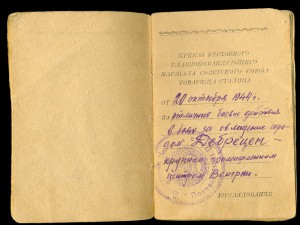 ПРИКАЗ ВЕРХОВНОГО
ГЛАВНОКОМАНДУЮЩЕГО
МАРШАЛА СОВЕТСКОГО СОЮЗА
ТОВАРИЩА СТАЛИНА
от 20 октября 1944 г.
за отличные боевые действия
в боях за овладение горо-
дом Дебрецен -
крупным промышленным
центром Венгрии.